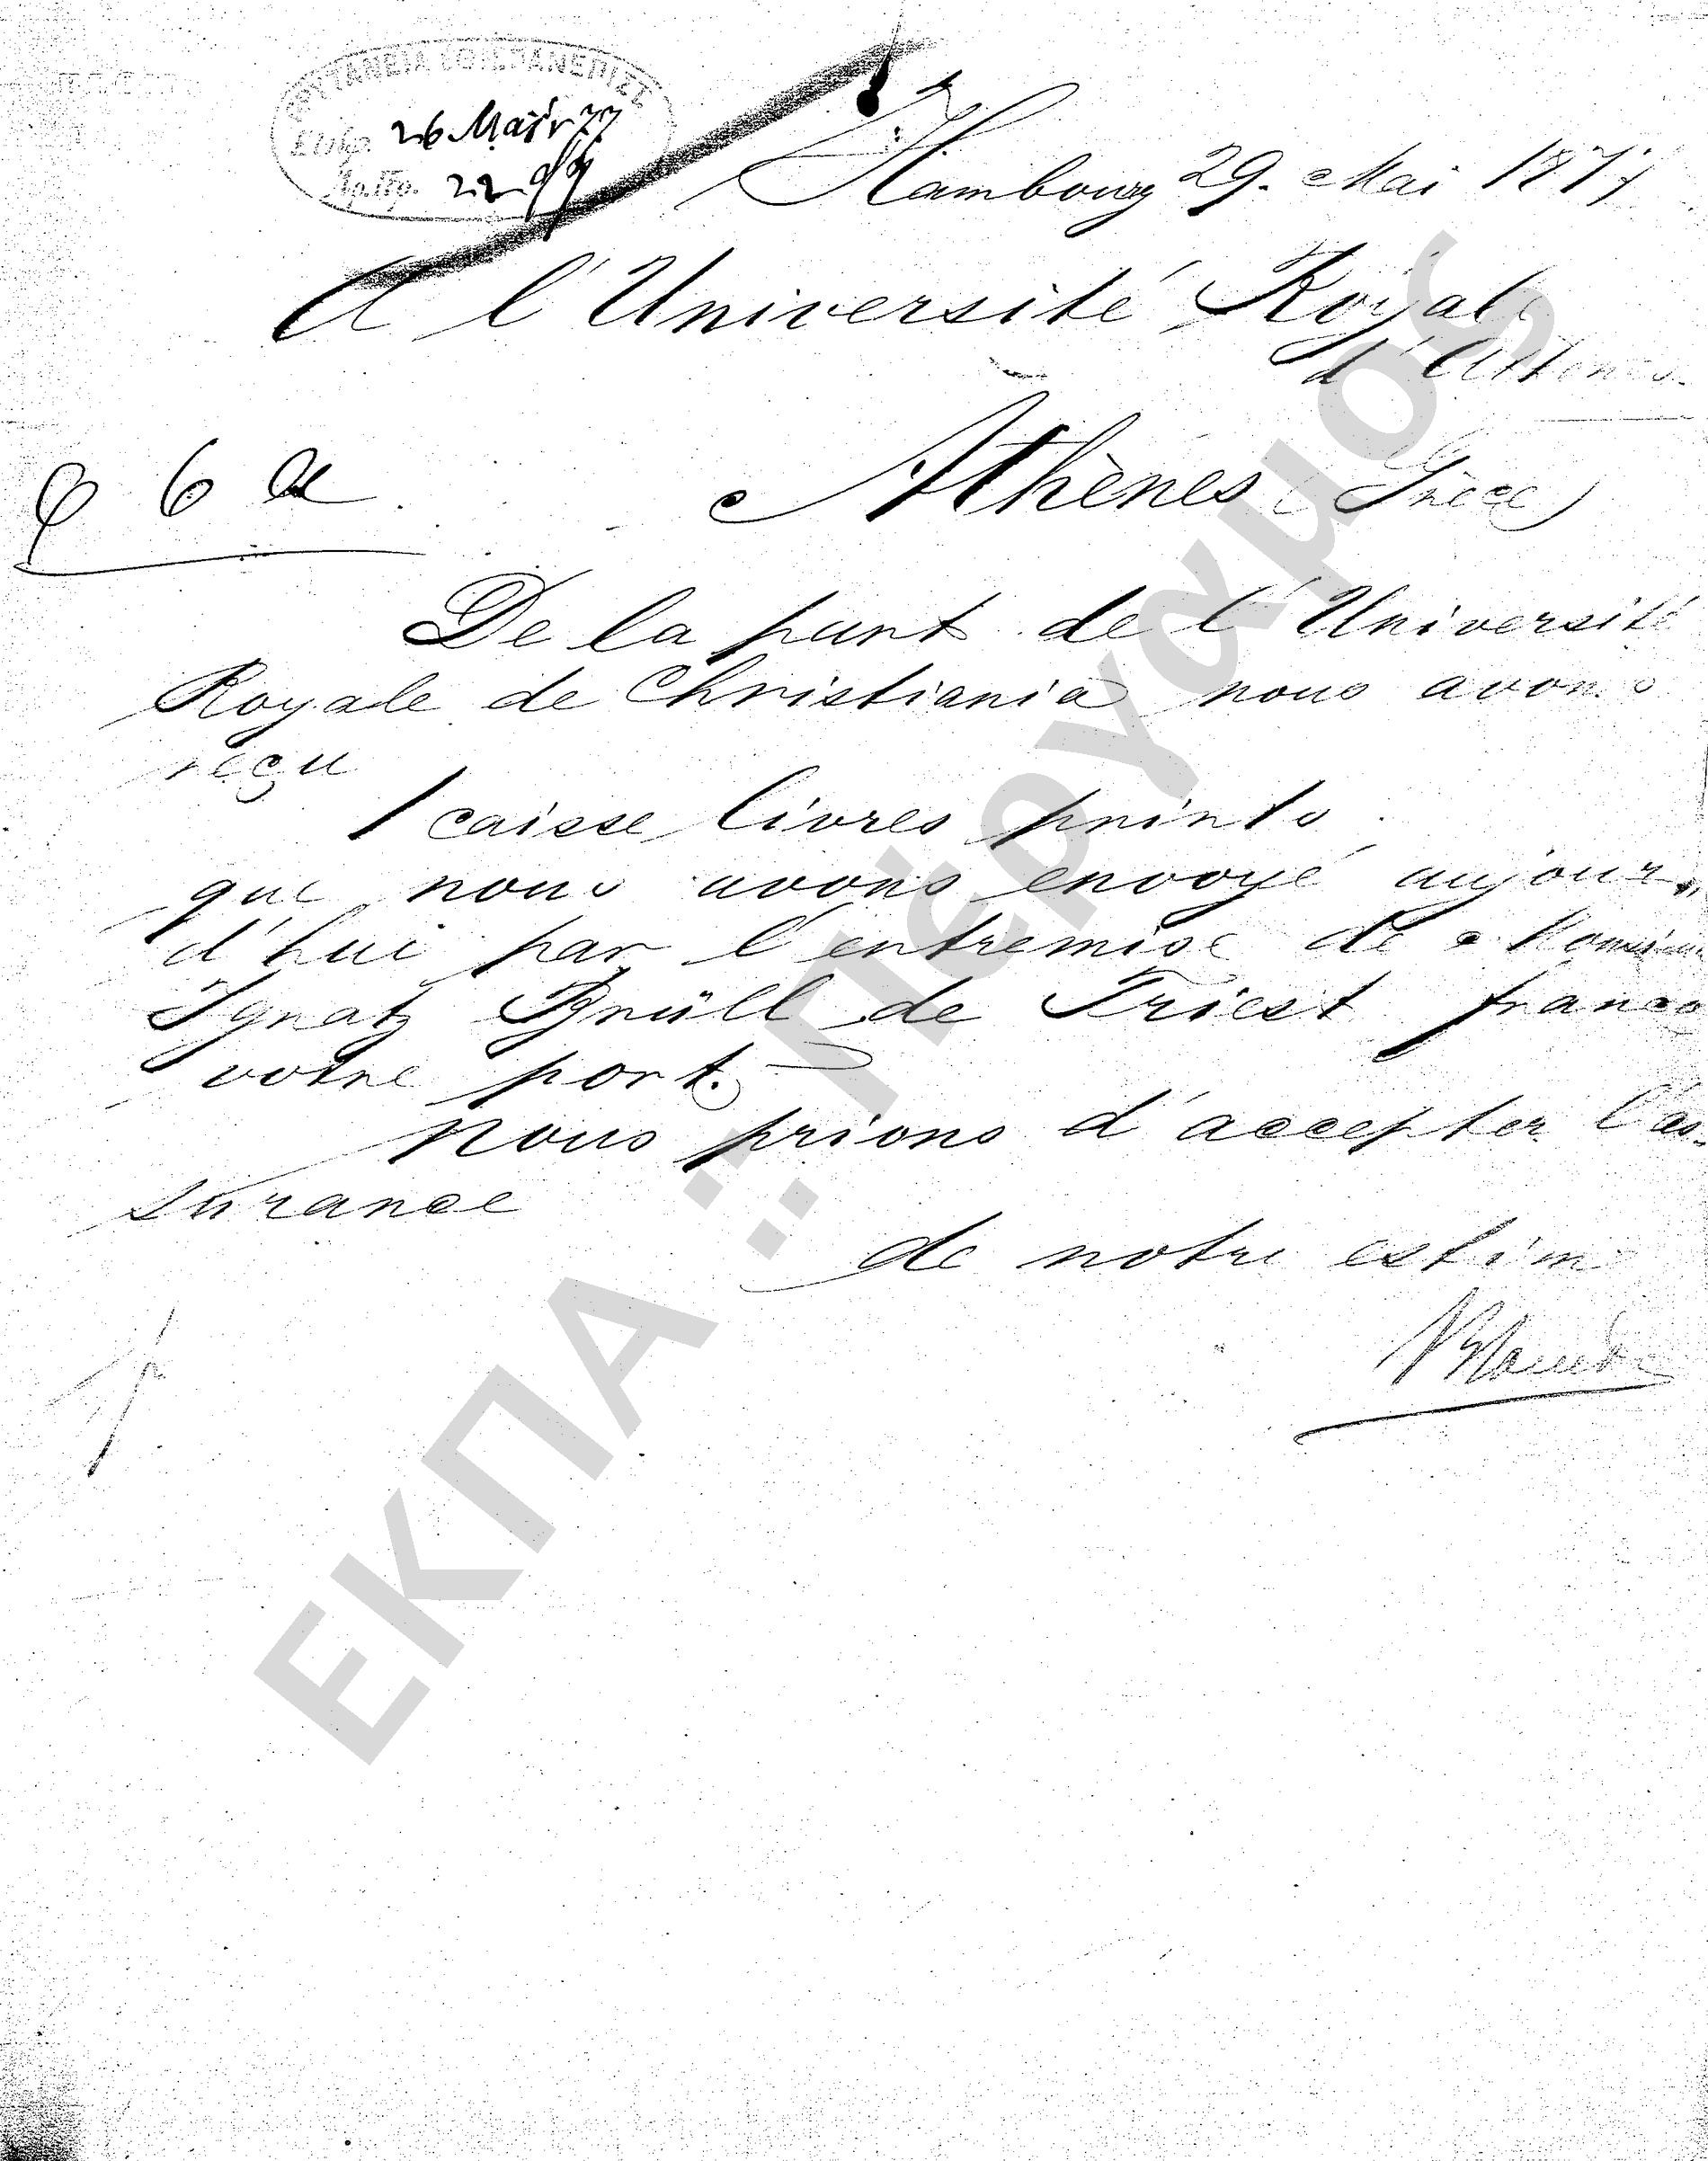 ΠΡΥΤΑΝΕΙΑ ΕΘΝ. ΠΑΝΕΠΙΣΤ
26 Μαΐου 77
Αρ. Πρ.
Hambourg 29. Mai 1877
A l'Université Royale
d'Athènes.
Athènes (Grèce)
De la part de l'Université
Royale de Christiania nous avons
reçu
1 caisse livres prints
que nous avons envoyé aujour„
d'hui par l'entremise de Monsieur
Ignatz de Triest franco
votre port.
Nous prions d'accepter l'as-
surance
de notre estime
ΕΚΠΑ :: Πέργαμος